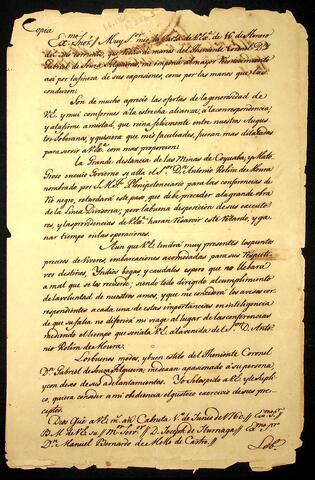 Copia
Ex.mo S.or / Muy S.or mio, la Carta de V.E. de 26 de Henero
de este corriente, que recibo de mano del Theniente Coronel D.n
Gabriel de Souza Filgueiras, me impone el mayor Reconocimiento
asi por la fineza de sus expresiones, como por las manos que la
condujeron.
Son de mucho aprecio las ofertas de la generosidad de
V.E. y mui conformes a la estrecha alianza, a la correspondencia,
y a la firme amistad, que reina felizmente entre nuestros Augus-
tos Soberanos, y quisiera que mis facultades, fueran mas dilatadas
para servir a V.E. con mas propiedad.
La Grande distancia de las Minas de Cuyaba, y Mato
Groso en cuio Govierno se alla el S.or D.n Antonio Rolim de Moura
nombrado por S. M. F. Plenipotenciario para las conferencias de
Rio negro, retardará este paso, que debe preceder a la grande obra
de la Linea Divisoria; pero la buena disposicion de sus executo-
res, y las providencias de V.E. haran resarcir este retardo, y ga-
nar tiempo en las operaciones.
Aun que V.E. tendrá muy presentes los puntos
precisos de Viveres, embarcaciones acomodadas para sus respecti-
vos destinos, Yndios bogas, y caudales espero que no llebará
a mal que se los recuerde; siendo todo dirigido al cumplimiento
de la voluntad de nuestros amos, y que me concederá los avisos cor-
respondientes a cada una de estas importancias en inteligencia
de que su falta no diferirá mi viage al lugar de las conferencias
midiendo el tiempo que señala V.E. a la venida de el S.or D.n Anto-
nio Rolim de Moura.
Los buenos modos, y buen estilo del Theniente Coronel
D.n Gabriel de Souza Filgueiras, me dexan apasionado a su persona,
y con deseo de sus adelantamientos. Yo se los pido a V.E. y le supli-
co, quiera conceder a mi obediencia el gustoso exercicio de sus pre-
ceptos.
Dios Gue a V.E. m.s a.s Cabruta 1.º de Junio de 1760 // Ex.mo S.or
B. M. de V.E. su // M.or Serv.or // D. Joseph de Iturriaga // Ex.mo S.or
D.n Manuel Bernardo de Mello de Castro //